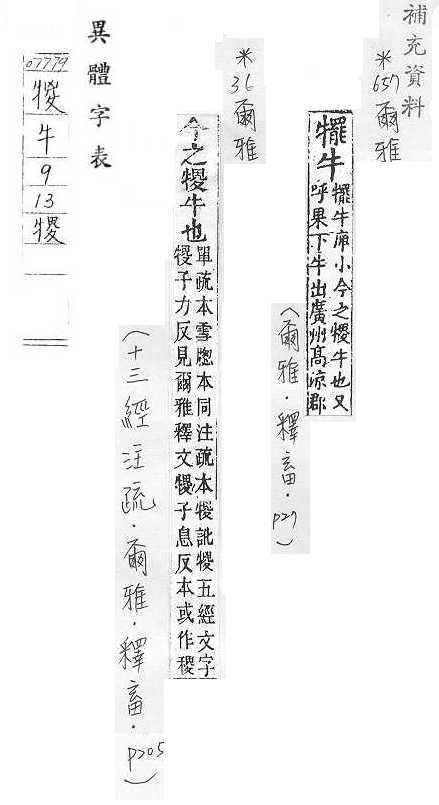 補充資料
*657爾雅
犤牛
犤牛庳小今之牛也又
呼果下牛出廣州高涼郡
(爾雅.釋畜.P27)
*36爾雅
今之牛也
單疏本雪牕本同注疏本訛五經文字
子力反見爾雅釋文子息反本或作稷
(十三經注疏.爾雅.釋畜.P205)
異體字表
07779
牛
9
13